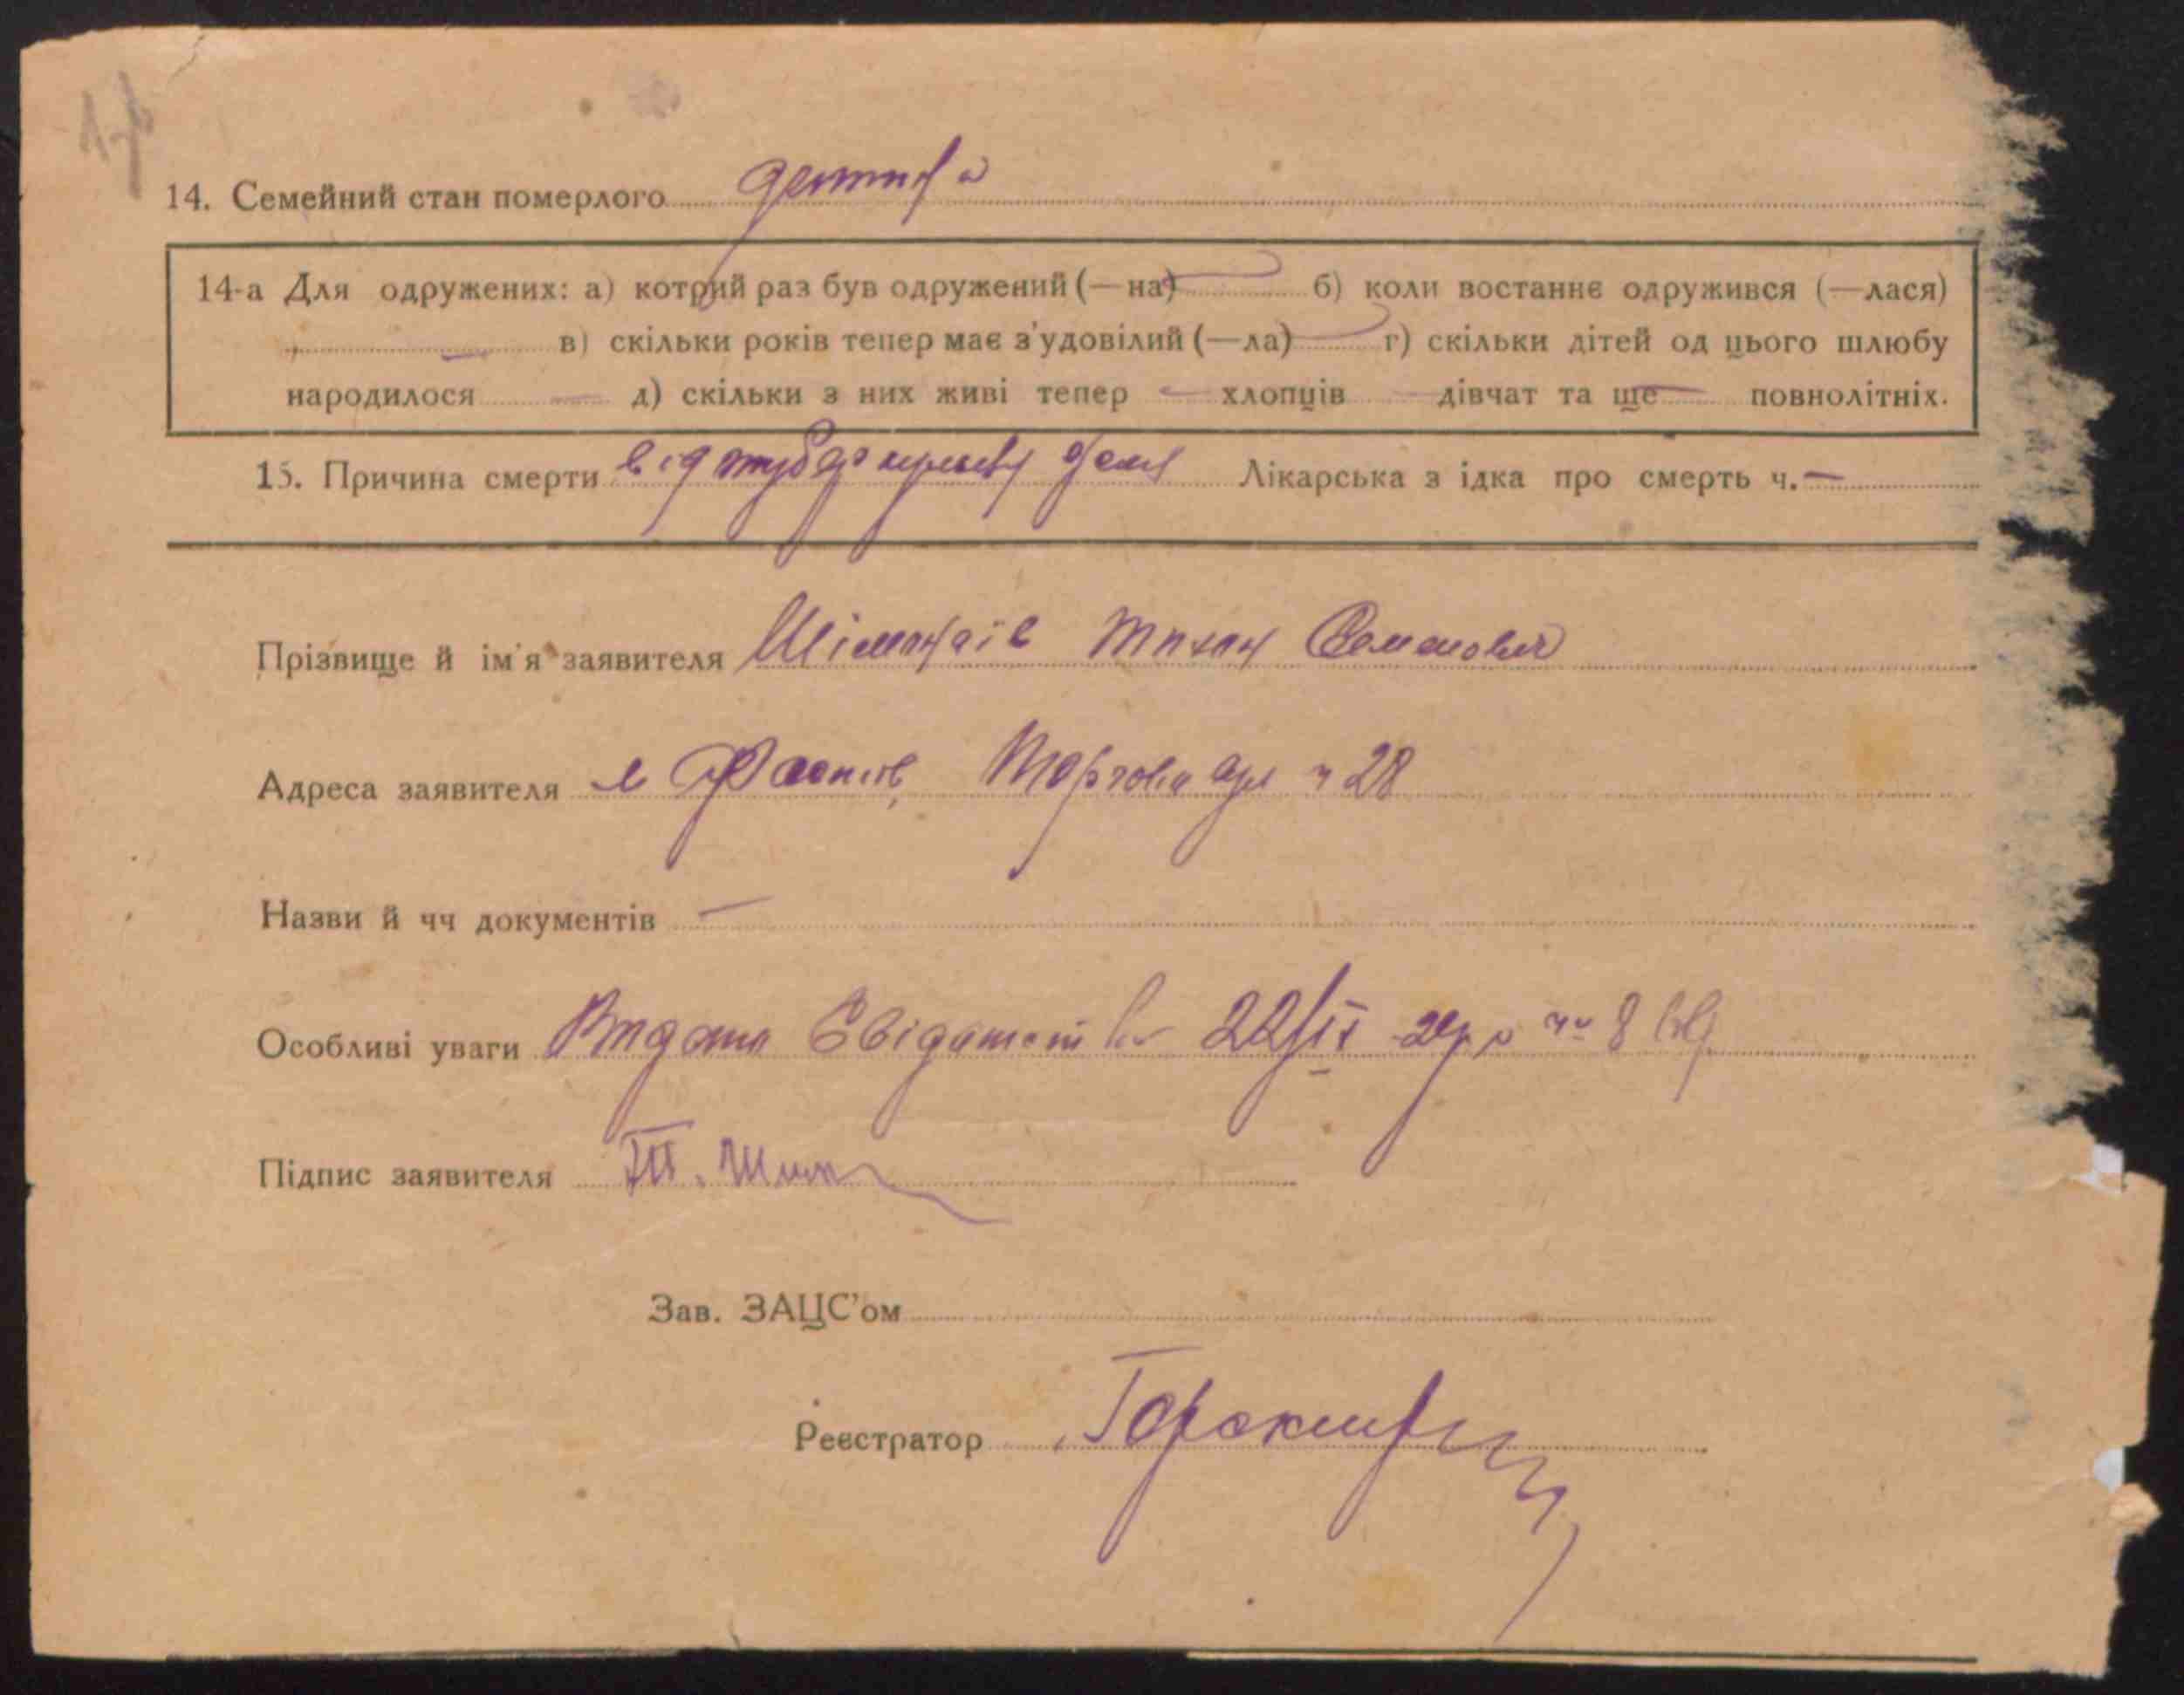 14. Семейний стан померлого дитина
14-а Для одружених: а) котрий раз був одружений (—на) б) коли востаннє одружився (—лася)
в) скільки років тепер має з'удовілий (—ла) — г) скільки дітей од цього шлюбу
народилося — д) скільки з них живі тепер — хлопців — дівчат та ще — повнолітніх.
15. Причина смерти від Лікарська з ідка про смерть ч. —
Прізвище й ім'я заявителя Тихон Семенович
Адреса заявителя м Фастів, Торгова вул ч 28
Назви й чч документів —
Особливі уваги Видано Свідатство 22/ІХ
Підпис заявителя
Зав. ЗАЦС'ом
Реєстратор